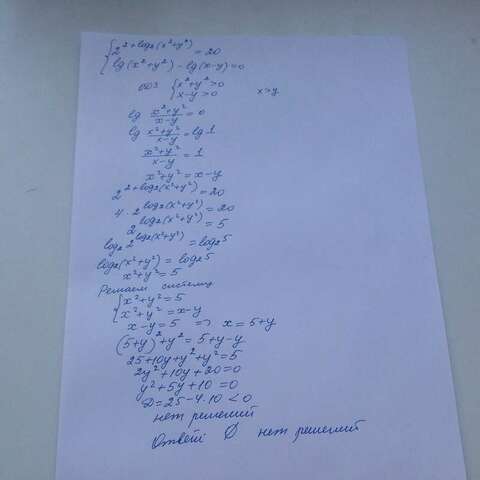 {2^(2+log2(x²+y²)) = 20
{lg(x²+y²) - lg(x-y) = 0
ОДЗ {x²+y²>0
{x-y>0 x>y
lg (x²+y²)/(x-y) = 0
lg (x²+y²)/(x-y) = lg 1
(x²+y²)/(x-y) = 1
x²+y² = x-y
2^(2+log2(x²+y²)) = 20
4·2^(log2(x²+y²)) = 20
2^(log2(x²+y²)) = 5
log2 2^(log2(x²+y²)) = log2 5
log2(x²+y²) = log2 5
x²+y² = 5
Решаем систему
{x²+y² = 5
{x²+y² = x-y
x-y = 5 => x = 5+y
(5+y)²+y² = 5+y-y
25+10y+y²+y² = 5
2y²+10y+20 = 0
y²+5y+10 = 0
D = 25-4·10 < 0
нет решений
Ответ: ∅ нет решений